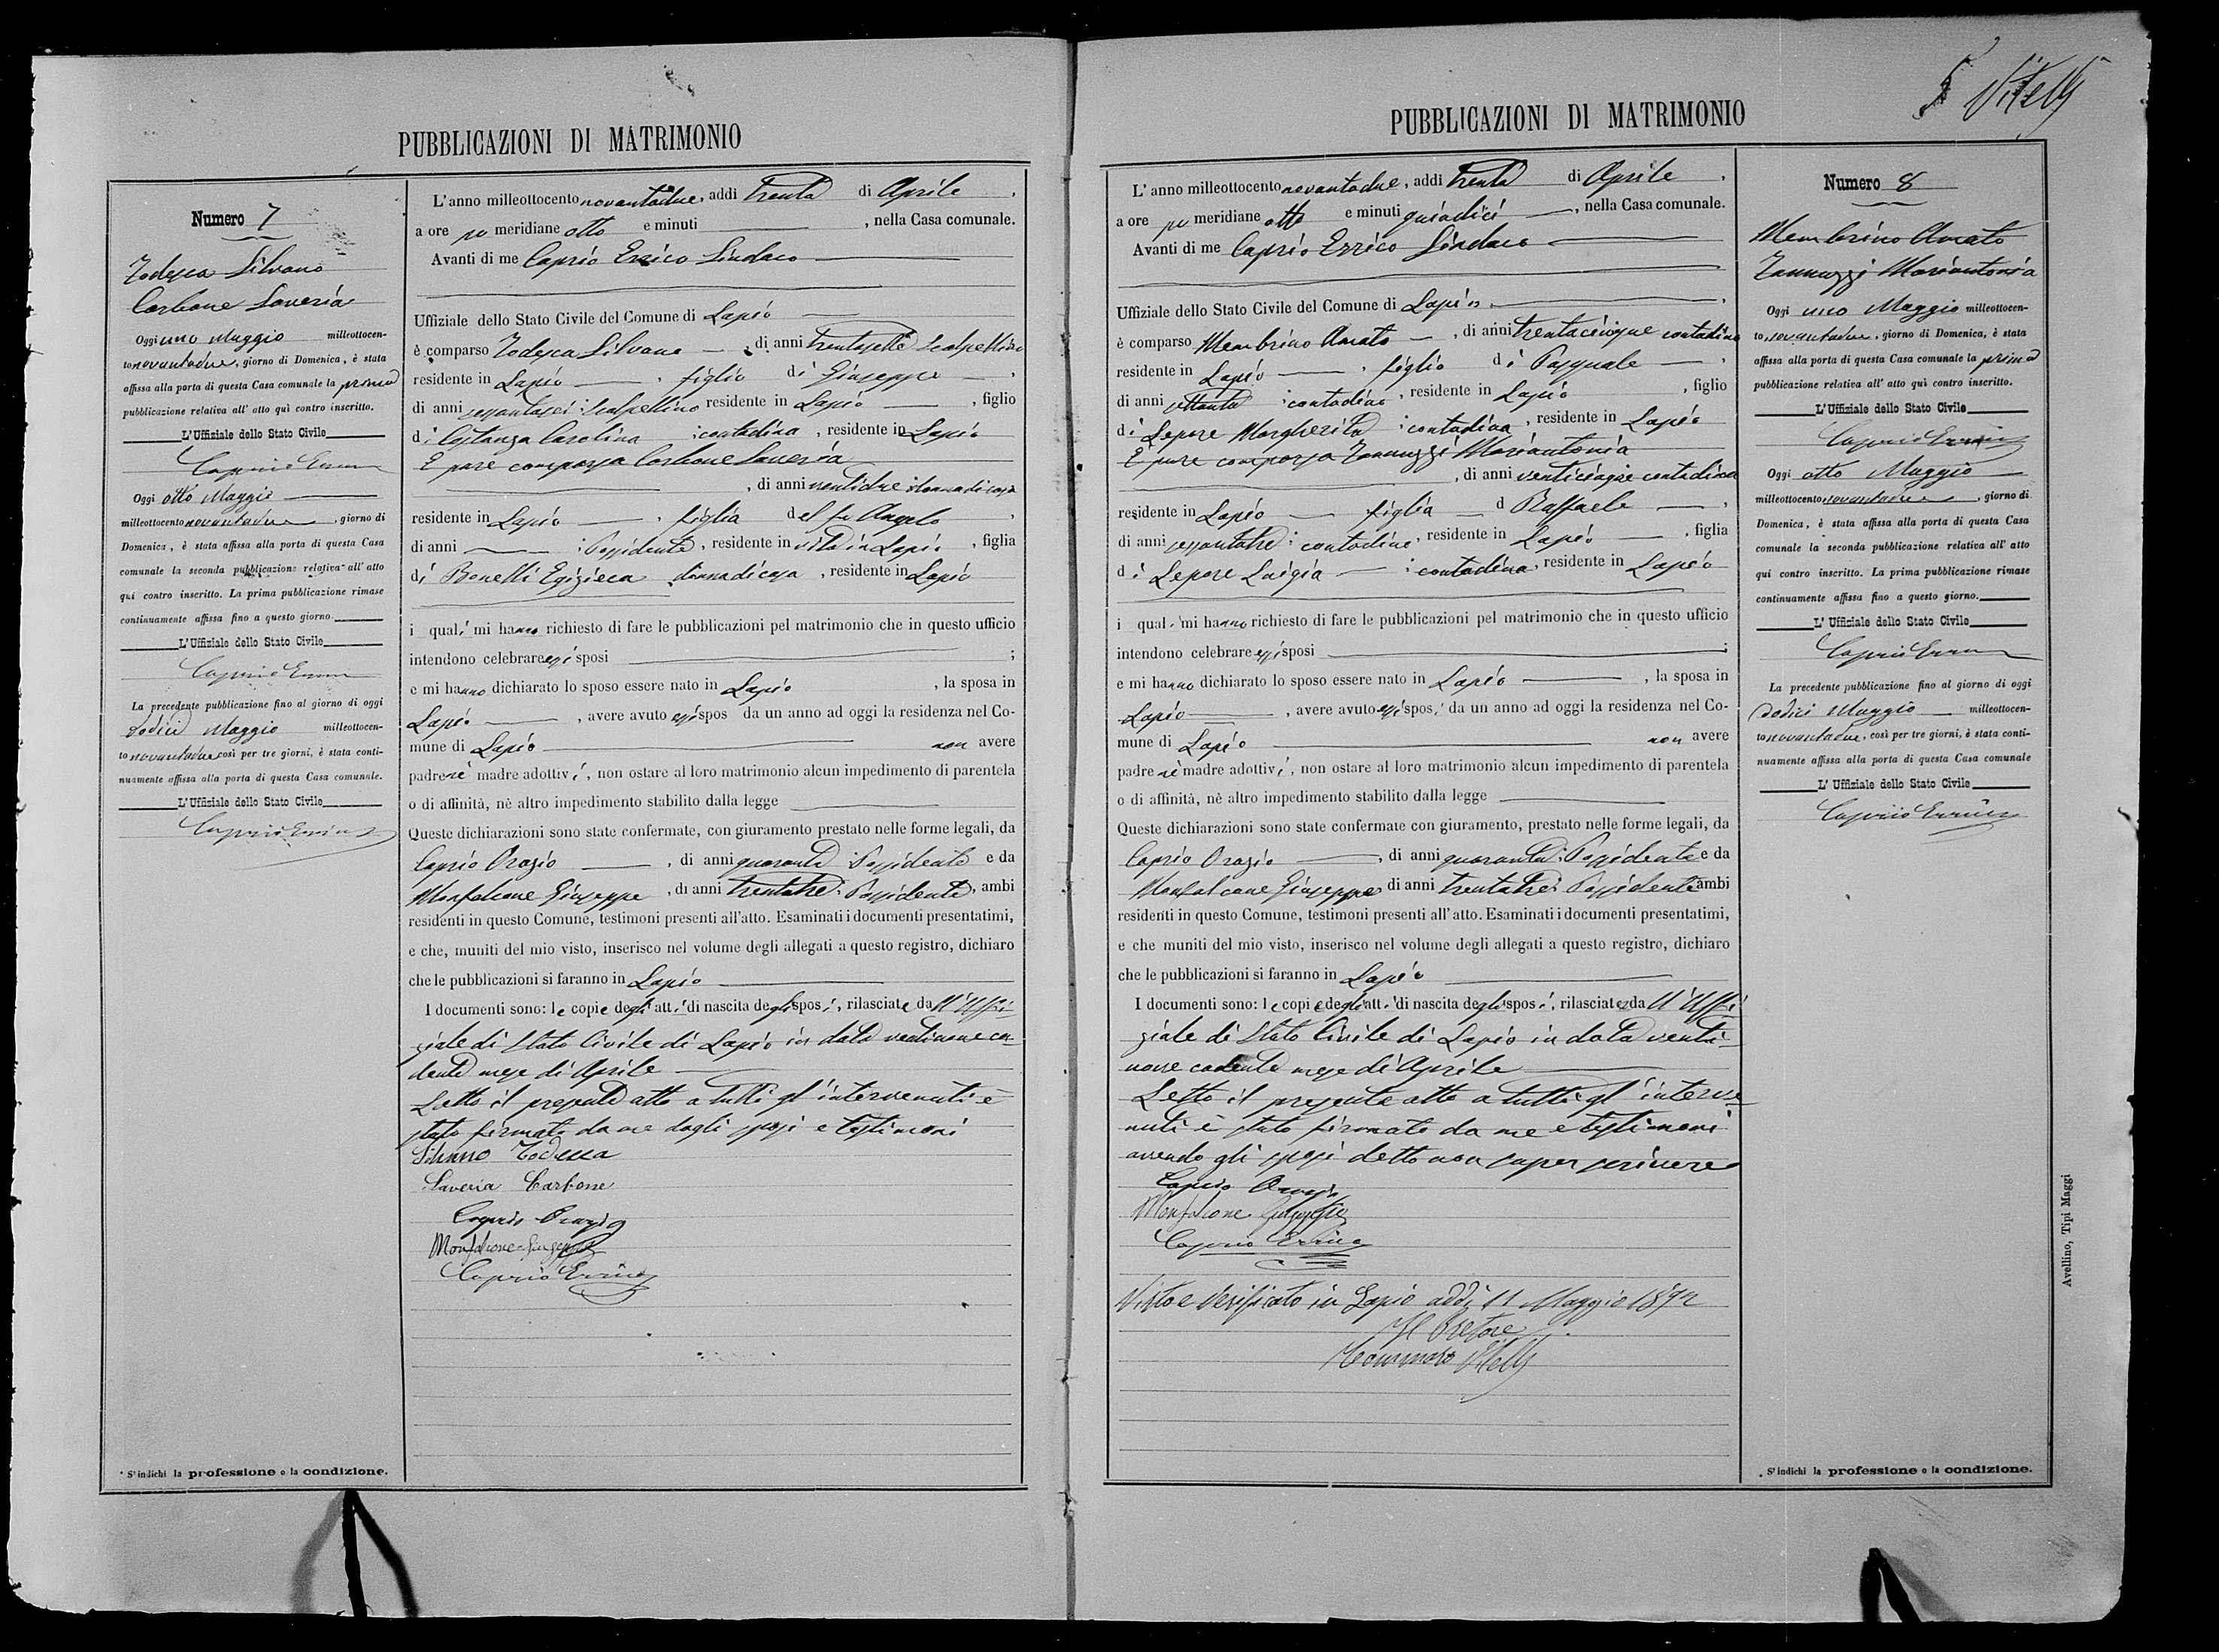 5 Vitelli
PUBBLICAZIONI DI MATRIMONIO
Numero 7
Todesca Silvano
Carbone Saveria
Oggi uno Maggio milleottocen-
to novantadue, giorno di Domenica, è stata
affissa alla porta di questa Casa comunale la prima
pubblicazione relativa all' atto quì contro inscritto.
L'Uffiziale dello Stato Civile
Caprio Errico
Oggi otto Maggio
milleottocento novantadue, giorno di
Domenica, è stata affissa alla porta di questa Casa
comunale la seconda pubblicazione relativa all' atto
quì contro inscritto. La prima pubblicazione rimase
continuamente affissa fino a questo giorno.
L'Uffiziale dello Stato Civile
Caprio Errico
La precedente pubblicazione fino al giorno di oggi
dodici Maggio milleottocen-
to novantadue, così per tre giorni, è stata conti-
nuamente affissa alla porta di questa Casa comunale.
L'Uffiziale dello Stato Civile
Caprio Errico
* S'indichi la professione o la condizione.
L'anno milleottocento novantadue, addì trenta di Aprile,
a ore po meridiane otto e minuti , nella Casa comunale.
Avanti di me Caprio Errico Sindaco
Uffiziale dello Stato Civile del Comune di Lapio
è comparso Todesca Silvano, di anni trentasette scalpellino
residente in Lapio, figlio di Giuseppe,
di anni sessantasei scalpellino residente in Lapio, figlio
di Costanza Carolina contadina, residente in Lapio
E pure comparsa Carbone Saveria
, di anni ventidue donna di casa
residente in Lapio, figlia del fu Angelo,
di anni : Possidente, residente in vita in Lapio, figlia
di Bonelli Egiziaca donna di casa, residente in Lapio
i quali mi hanno richiesto di fare le pubblicazioni pel matrimonio che in questo ufficio
intendono celebrare essi sposi ;
e mi hanno dichiarato lo sposo essere nato in Lapio, la sposa in
Lapio, avere avuto essi spos da un anno ad oggi la residenza nel Co-
mune di Lapio non avere
padre nè madre adottivi, non ostare al loro matrimonio alcun impedimento di parentela
o di affinità, nè altro impedimento stabilito dalla legge
Queste dichiarazioni sono state confermate, con giuramento prestato nelle forme legali, da
Caprio Orazio, di anni quaranta Possidente e da
Monfalcone Giuseppe, di anni trentatre Possidente, ambi
residenti in questo Comune, testimoni presenti all'atto. Esaminati i documenti presentatimi,
e che, muniti del mio visto, inserisco nel volume degli allegati a questo registro, dichiaro
che le pubblicazioni si faranno in Lapio
I documenti sono: le copie degli atti di nascita degli sposi, rilasciate dall'Uffi-
ziale di Stato Civile di Lapio in data ventinove ca-
dente mese di Aprile
Letto il presente atto a tutti gl'intervenuti è
stato firmato da me dagli sposi e testimoni
Silvano Todesca
Saveria Carbone
Caprio Orazio
Monfalcone Giuseppe
Caprio Errico
PUBBLICAZIONI DI MATRIMONIO
L'anno milleottocento novantadue, addì trenta di Aprile,
a ore po meridiane otto e minuti quindici, nella Casa comunale.
Avanti di me Caprio Errico Sindaco
Uffiziale dello Stato Civile del Comune di Lapio
è comparso Membrino Amato, di anni trentacinque contadino
residente in Lapio, figlio di Pasquale,
di anni settanta contadino, residente in Lapio, figlio
di Lepore Margherita contadina, residente in Lapio
E pure comparsa Iannuzzi Mariantonia
, di anni venticinque contadina
residente in Lapio figlia d Raffaele,
di anni sessantatre contadino, residente in Lapio, figlia
di Lepore Luigia contadina, residente in Lapio
i quali mi hanno richiesto di fare le pubblicazioni pel matrimonio che in questo ufficio
intendono celebrare essi sposi ;
e mi hanno dichiarato lo sposo essere nato in Lapio, la sposa in
Lapio, avere avuto essi sposi da un anno ad oggi la residenza nel Co-
mune di Lapio non avere
padre nè madre adottivi, non ostare al loro matrimonio alcun impedimento di parentela
o di affinità, nè altro impedimento stabilito dalla legge
Queste dichiarazioni sono state confermate con giuramento, prestato nelle forme legali, da
Caprio Orazio, di anni quaranta Possidente e da
Monfalcone Giuseppe di anni trentatre Possidente ambi
residenti in questo Comune, testimoni presenti all'atto. Esaminati i documenti presentatimi,
e che muniti del mio visto, inserisco nel volume degli allegati a questo registro, dichiaro
che le pubblicazioni si faranno in Lapio
I documenti sono: le copie degli atti di nascita degli sposi, rilasciate dall'Uffi
ziale di Stato Civile di Lapio in data venti-
nove cadente mese di Aprile
Letto il presente atto a tutti gl'interve
nuti è stato firmato da me e testimoni
avendo gli sposi detto non saper scrivere
Caprio Orazio
Monfalcone Giuseppe
Caprio Errico
Visto e Verificato in Lapio addì 11 Maggio 1892
Il Pretore
Tommaso Vitelli
Numero 8
Membrino Amato
Iannuzzi Mariantonia
Oggi uno Maggio milleottocen-
to novantadue, giorno di Domenica, è stata
affissa alla porta di questa Casa comunale la prima
pubblicazione relativa all' atto quì contro inscritto.
L'Uffiziale dello Stato Civile
Caprio Errico
Oggi otto Maggio
milleottocento novantadue, giorno di
Domenica, è stata affissa alla porta di questa Casa
comunale la seconda pubblicazione relativa all' atto
quì contro inscritto. La prima pubblicazione rimase
continuamente affissa fino a questo giorno.
L' Uffiziale dello Stato Civile
Caprio Errico
La precedente pubblicazione fino al giorno di oggi
dodici Maggio milleottocen-
to novantadue, così per tre giorni, è stata conti-
nuamente affissa alla porta di questa Casa comunale
L' Uffiziale dello Stato Civile
Caprio Errico
* S'indichi la professione o la condizione.
Avellino, Tipi Maggi